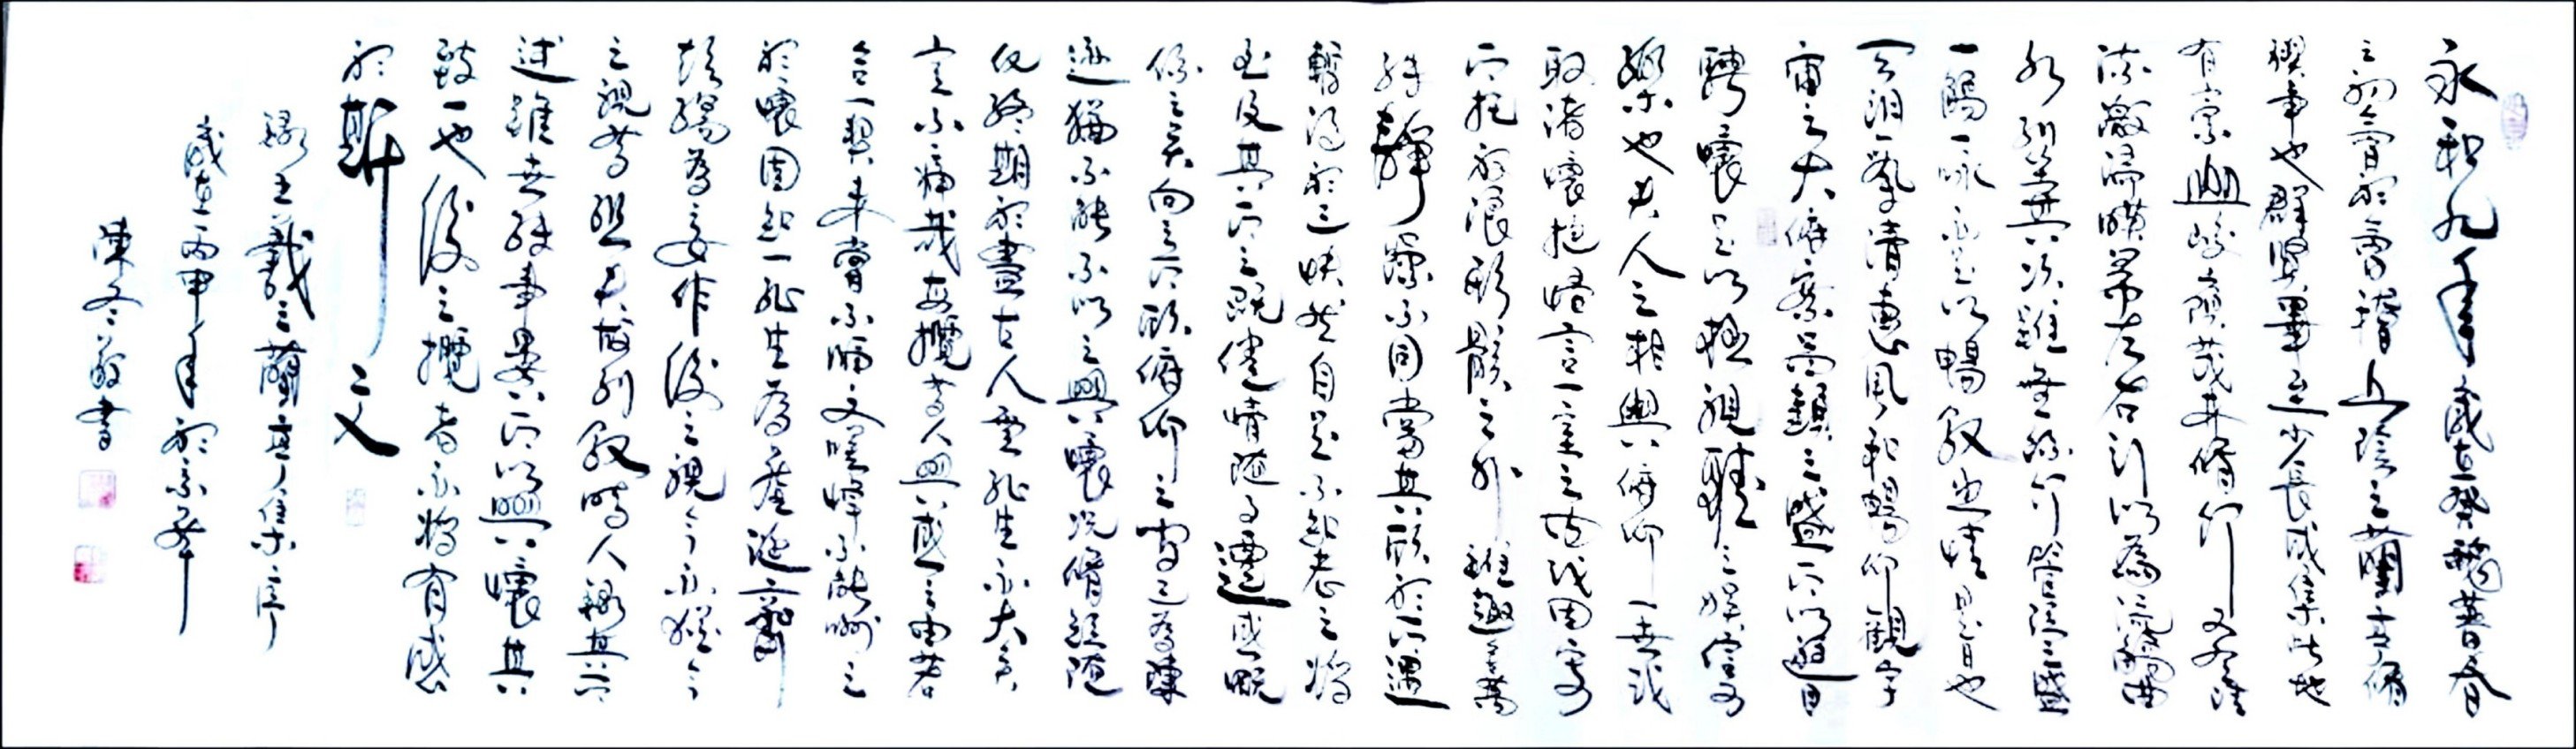 永和九年歲在癸醜暮春
之初會於會稽山陰之蘭亭脩
禊事也群賢畢至少長咸集此地
有崇山峻嶺茂林脩竹又有清
流激湍暎帶左右引以為流觴曲
水列坐其次雖無絲竹管弦之盛
一觴一詠亦足以暢敘幽情是日也
天朗氣清惠風和暢仰觀宇
宙之大俯察品類之盛所以遊目
騁懷足以極視聽之娛信可
樂也夫人之相與俯仰一世或
取諸懷抱悟言一室之內或因寄
所托放浪形骸之外雖趣舍萬
殊靜躁不同當其欣於所遇
暫得於己快然自足不知老之將
至及其所之既倦情隨事遷感慨
係之矣向之所欣俯仰之間已為陳
迹猶不能不以之興懷況脩短隨
化終期於盡古人云死生亦大矣
豈不痛哉每攬昔人興感之由若
合一契未嘗不臨文嗟悼不能喻之
於懷固知一死生為虛誕齊
彭殤為妄作後之視今亦猶今
之視昔悲夫故列敘時人錄其所
述雖世殊事異所以興懷其
致一也後之攬者亦將有感
於斯文
錄王羲之蘭亭集序
歲在丙申年於京華
陳冬
書